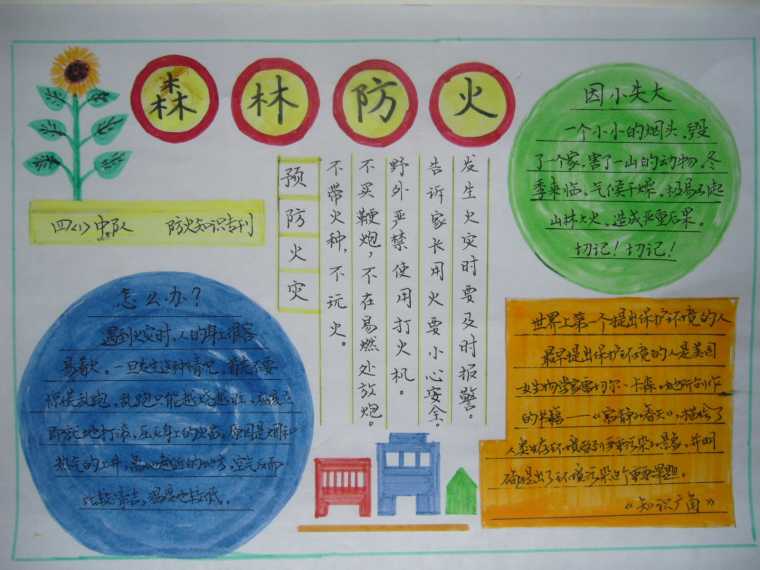 森 林 防 火
因小失大
一个小小的烟头,毁
了一个家,害了一山的动物,冬
季来临,气候干燥,极易引起
山林大火,造成严重后果。
切记!切记!
四(1)中队 防火知识专刊
预防火灾
发生火灾时要及时报警。
告诉家长用火要小心安全。
野外严禁使用打火机。
不买鞭炮,不在易燃处放炮。
不带火种,不玩火。
怎么办?
遇到火灾时,人的身上很容
易着火。一旦发生这种情况,首先不要
惊慌乱跑,乱跑只能越烧越旺,应该立
即就地打滚,压灭身上的火苗,原因是烟和
热气的上升,靠地最近的地方,空气反而
比较清洁,温度也较低。
世界上第一个提出保护环境的人
最早提出保护环境的人是美国
女生物学家雷切尔·卡森,她所创作
的书籍——《寂静的春天》,描绘了
人类生存环境受到严重污染的景象,并明
确提出了环境污染这个重要课题。
《知识广角》